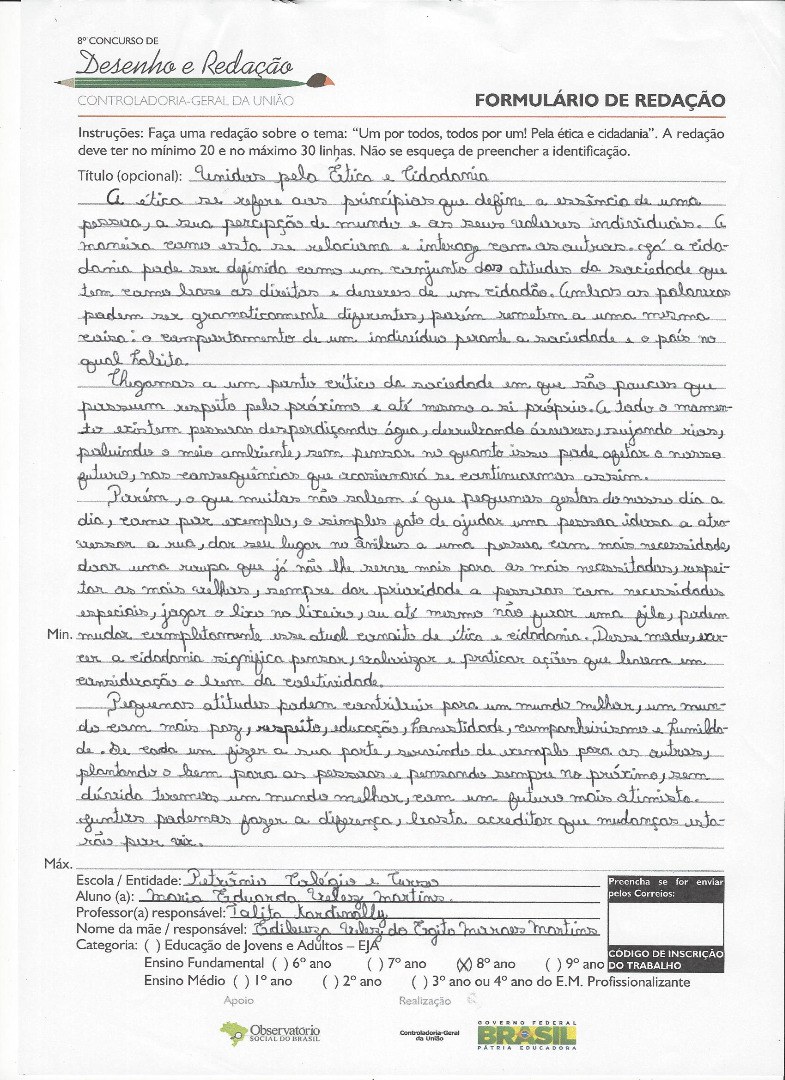 8º CONCURSO DE
Desenho e Redação
CONTROLADORIA-GERAL DA UNIÃO
FORMULÁRIO DE REDAÇÃO
Instruções: Faça uma redação sobre o tema: "Um por todos, todos por um! Pela ética e cidadania". A redação
deve ter no mínimo 20 e no máximo 30 linhas. Não se esqueça de preencher a identificação.
Título (opcional): Unidos pela Ética e Cidadania
A ética se refere aos princípios que define a essência de uma
pessoa, a sua percepção de mundo e as seus valores individuais. A
maneira como esta se relaciona e interage com os outros. Já a cida-
dania pode ser definida como um conjunto das atitudes da sociedade que
tem como base os direitos e deveres de um cidadão. Ambas as palavras
podem ser gramaticamente diferentes, porém remetem a uma mesma
coisa: o comportamento de um indivíduo perante a sociedade e o país no
qual habita.
Chegamos a um ponto crítico da sociedade em que são poucos que
possuem respeito pelo próximo e até mesmo a si próprio. A todo o momen-
to existem pessoas desperdiçando água, derrubando árvores, sujando rios,
poluindo o meio ambiente, sem pensar no quanto isso pode afetar o nosso
futuro, nas consequências que ocasionará se continuarmos assim.
Porém, o que muitos não sabem é que pequenos gestos do nosso dia a
dia, como por exemplo, o simples fato de ajudar uma pessoa idosa a atra-
vessar a rua, dar seu lugar no ônibus a uma pessoa com mais necessidade,
doar uma roupa que já não lhe serve mais para os mais necessitados, respei-
tar os mais velhos, sempre dar prioridade a pessoas com necessidades
especiais, jogar o lixo no lixeiro, ou até mesmo não furar uma fila, podem
Min. mudar completamente esse atual conceito de ética e cidadania. Desse modo, exer-
cer a cidadania significa pensar, valorizar e praticar ações que levem em
consideração o bem da coletividade.
Pequenas atitudes podem contribuir para um mundo melhor, um mun-
do com mais paz, respeito, educação, honestidade, companheirismo e humilda-
de. Se cada um fizer a sua parte, servindo de exemplo para os outros,
plantando o bem para as pessoas e pensando sempre no próximo, sem
dúvida teremos um mundo melhor, com um futuro mais otimista.
Juntos podemos fazer a diferença, basta acreditar que mudanças esta-
rão por vir.
Máx.
Escola / Entidade: Petrônio Colégio e Curso
Aluno (a): Maria Eduarda Velez Martins.
Professor(a) responsável: Talita Kardinally
Nome da mãe / responsável: Edileuza Velez do Moraes Martins
Categoria: ( ) Educação de Jovens e Adultos – EJA
Ensino Fundamental ( ) 6º ano ( ) 7º ano (X) 8º ano ( ) 9º ano
Ensino Médio ( ) 1º ano ( ) 2º ano ( ) 3º ano ou 4º ano do E.M. Profissionalizante
Preencha se for enviar
pelos Correios:
CÓDIGO DE INSCRIÇÃO
DO TRABALHO
Apoio
Realização
Observatório
SOCIAL DO BRASIL
Controladoria-Geral
da União
GOVERNO FEDERAL
BRASIL
PÁTRIA EDUCADORA